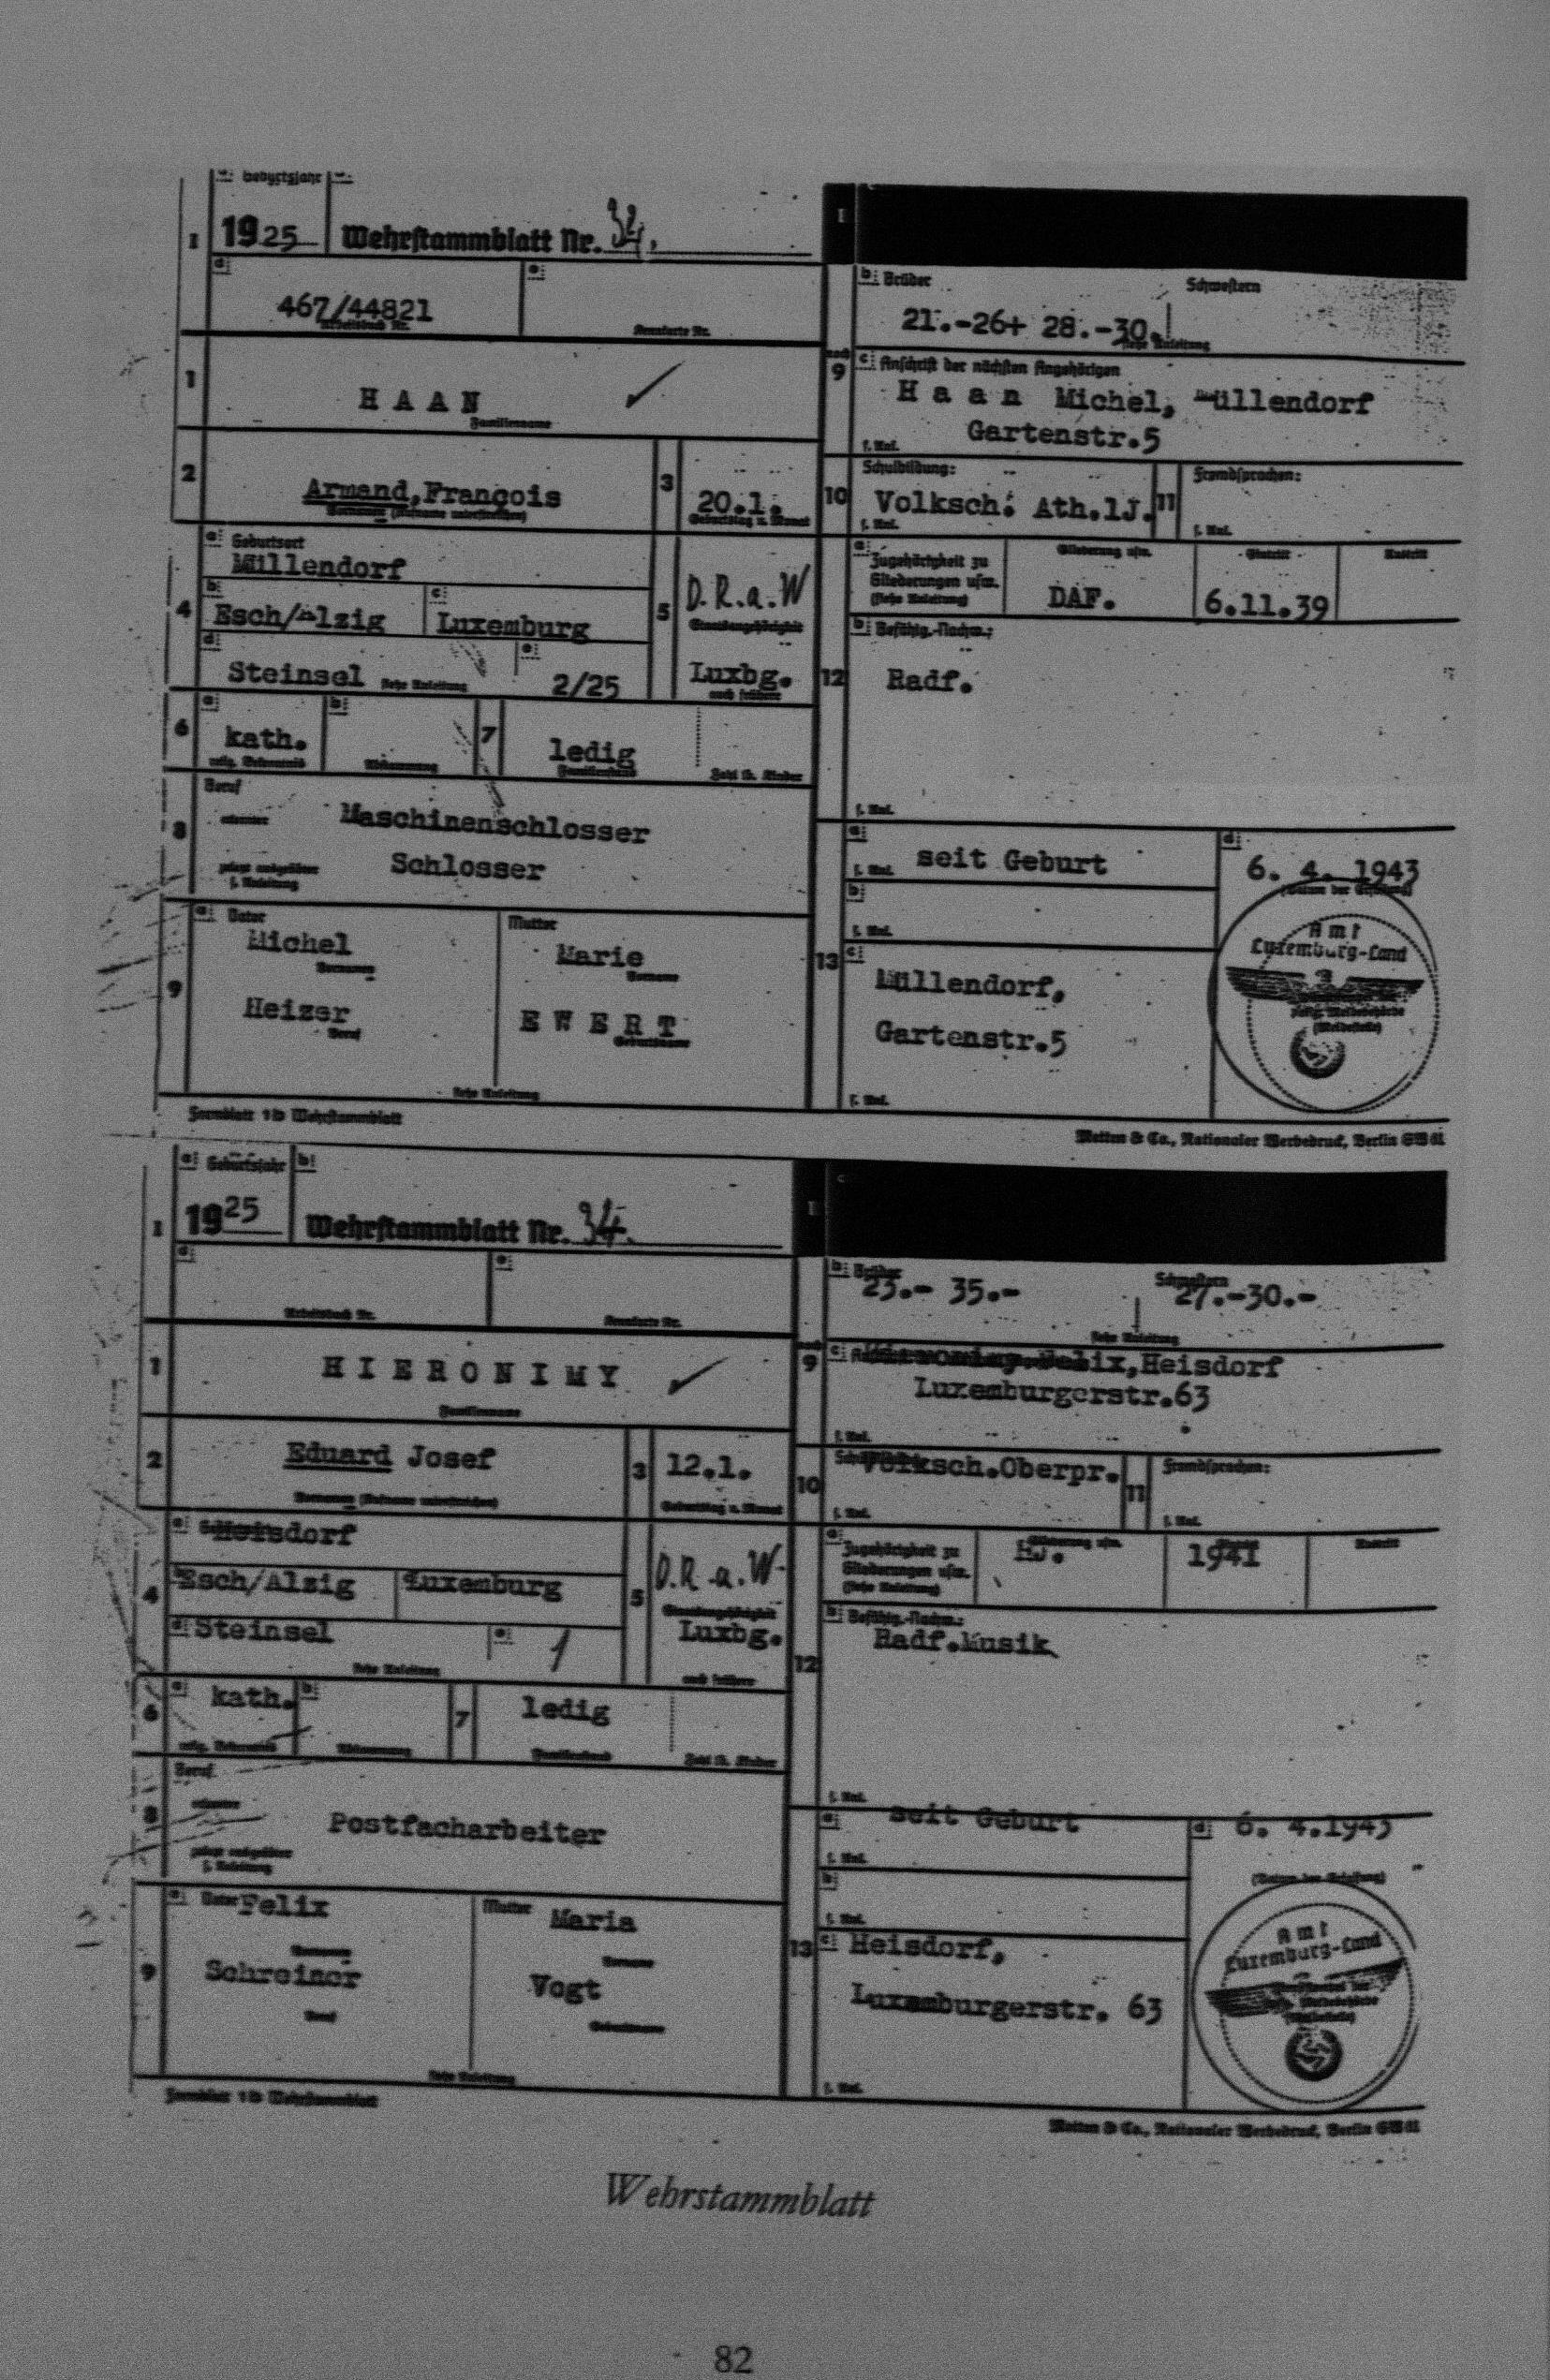 Geburtsjahr
I 1925 Wehrstammblatt Nr. 34.
d e
467/44821
Arbeitsbuch Nr. Kennkarte Nr.
1 HAAN
Familienname
2 Armand, François 3 20.1.
Vornamen (Rufname unterstreichen) Geburtstag u. Monat
a Geburtsort
Müllendorf
4 b Esch/Alzig c Luxemburg 5 D.R.a.W
Staatsangehörigkeit
d Steinsel siehe Anleitung e 2/25 Luxbg.
auch frühere
6 a kath. b 7 ledig
relig. Bekenntnis Abstammung Familienstand Zahl d. Kinder
8 Beruf
erlernter Maschinenschlosser
zuletzt ausgeübter Schlosser
s. Anleitung
9 a Vater Mutter
Michel Marie
Vornamen Vorname
Heizer EWERT
Beruf Geburtsname
siehe Anleitung
Formblatt 1b Wehrstammblatt
I
b Brüder Schwestern
21.-26+ 28.-30.
siehe Anleitung
noch 9 c Anschrift der nächsten Angehörigen
Haan Michel, Müllendorf
Gartenstr.5
s. Anl.
10 Schulbildung: 11 Fremdsprachen:
Volksch. Ath.1J.
s. Anl. s. Anl.
12 a Zugehörigkeit zu Gliederung usw. Eintritt Austritt
Gliederungen usw.
(siehe Anleitung) DAF. 6.11.39
b Befähig.-Nachw.:
Radf.
s. Anl.
13 a seit Geburt d 6. 4. 1943
s. Anl.
b
s. Anl.
c Müllendorf,
Gartenstr.5
s. Anl.
Amt
Luxemburg-Land
(Meldestelle)
Metten & Co., Nationaler Werbedruck, Berlin SW 61
a Geburtsjahr b
I 1925 Wehrstammblatt Nr. 34.
d e
Arbeitsbuch Nr. Kennkarte Nr.
1 HIERONIMY
Familienname
2 Eduard Josef 3 12.1.
Vornamen (Rufname unterstreichen) Geburtstag u. Monat
a Heisdorf
4 Esch/Alzig Luxemburg 5 D.R.a.W.
Staatsangehörigkeit
d Steinsel e 1 Luxbg.
siehe Anleitung auch frühere
6 a kath. b 7 ledig
relig. Bekenntnis Abstammung Familienstand Zahl d. Kinder
8 Beruf
erlernter
Postfacharbeiter
zuletzt ausgeübter
s. Anleitung
9 a Vater Felix Mutter Maria
Vornamen Vorname
Schreiner Vogt
Beruf Geburtsname
siehe Anleitung
Formblatt 1b Wehrstammblatt
I
b Brüder Schwestern
23.- 35.- 27.-30.-
siehe Anleitung
noch 9 c Hieronimy Felix, Heisdorf
Luxemburgerstr.63
s. Anl.
10 Volksch.Oberpr. 11 Fremdsprachen:
s. Anl. s. Anl.
12 a Zugehörigkeit zu Gliederung usw. Eintritt Austritt
Gliederungen usw. HJ. 1941
(siehe Anleitung)
b Befähig.-Nachw.:
Radf.Musik
s. Anl.
13 a seit Geburt d 6. 4.1943
s. Anl.
b
s. Anl.
c Heisdorf,
Luxemburgerstr. 63
s. Anl.
Amt
Luxemburg-Land
Metten & Co., Nationaler Werbedruck, Berlin SW 61
Wehrstammblatt
82